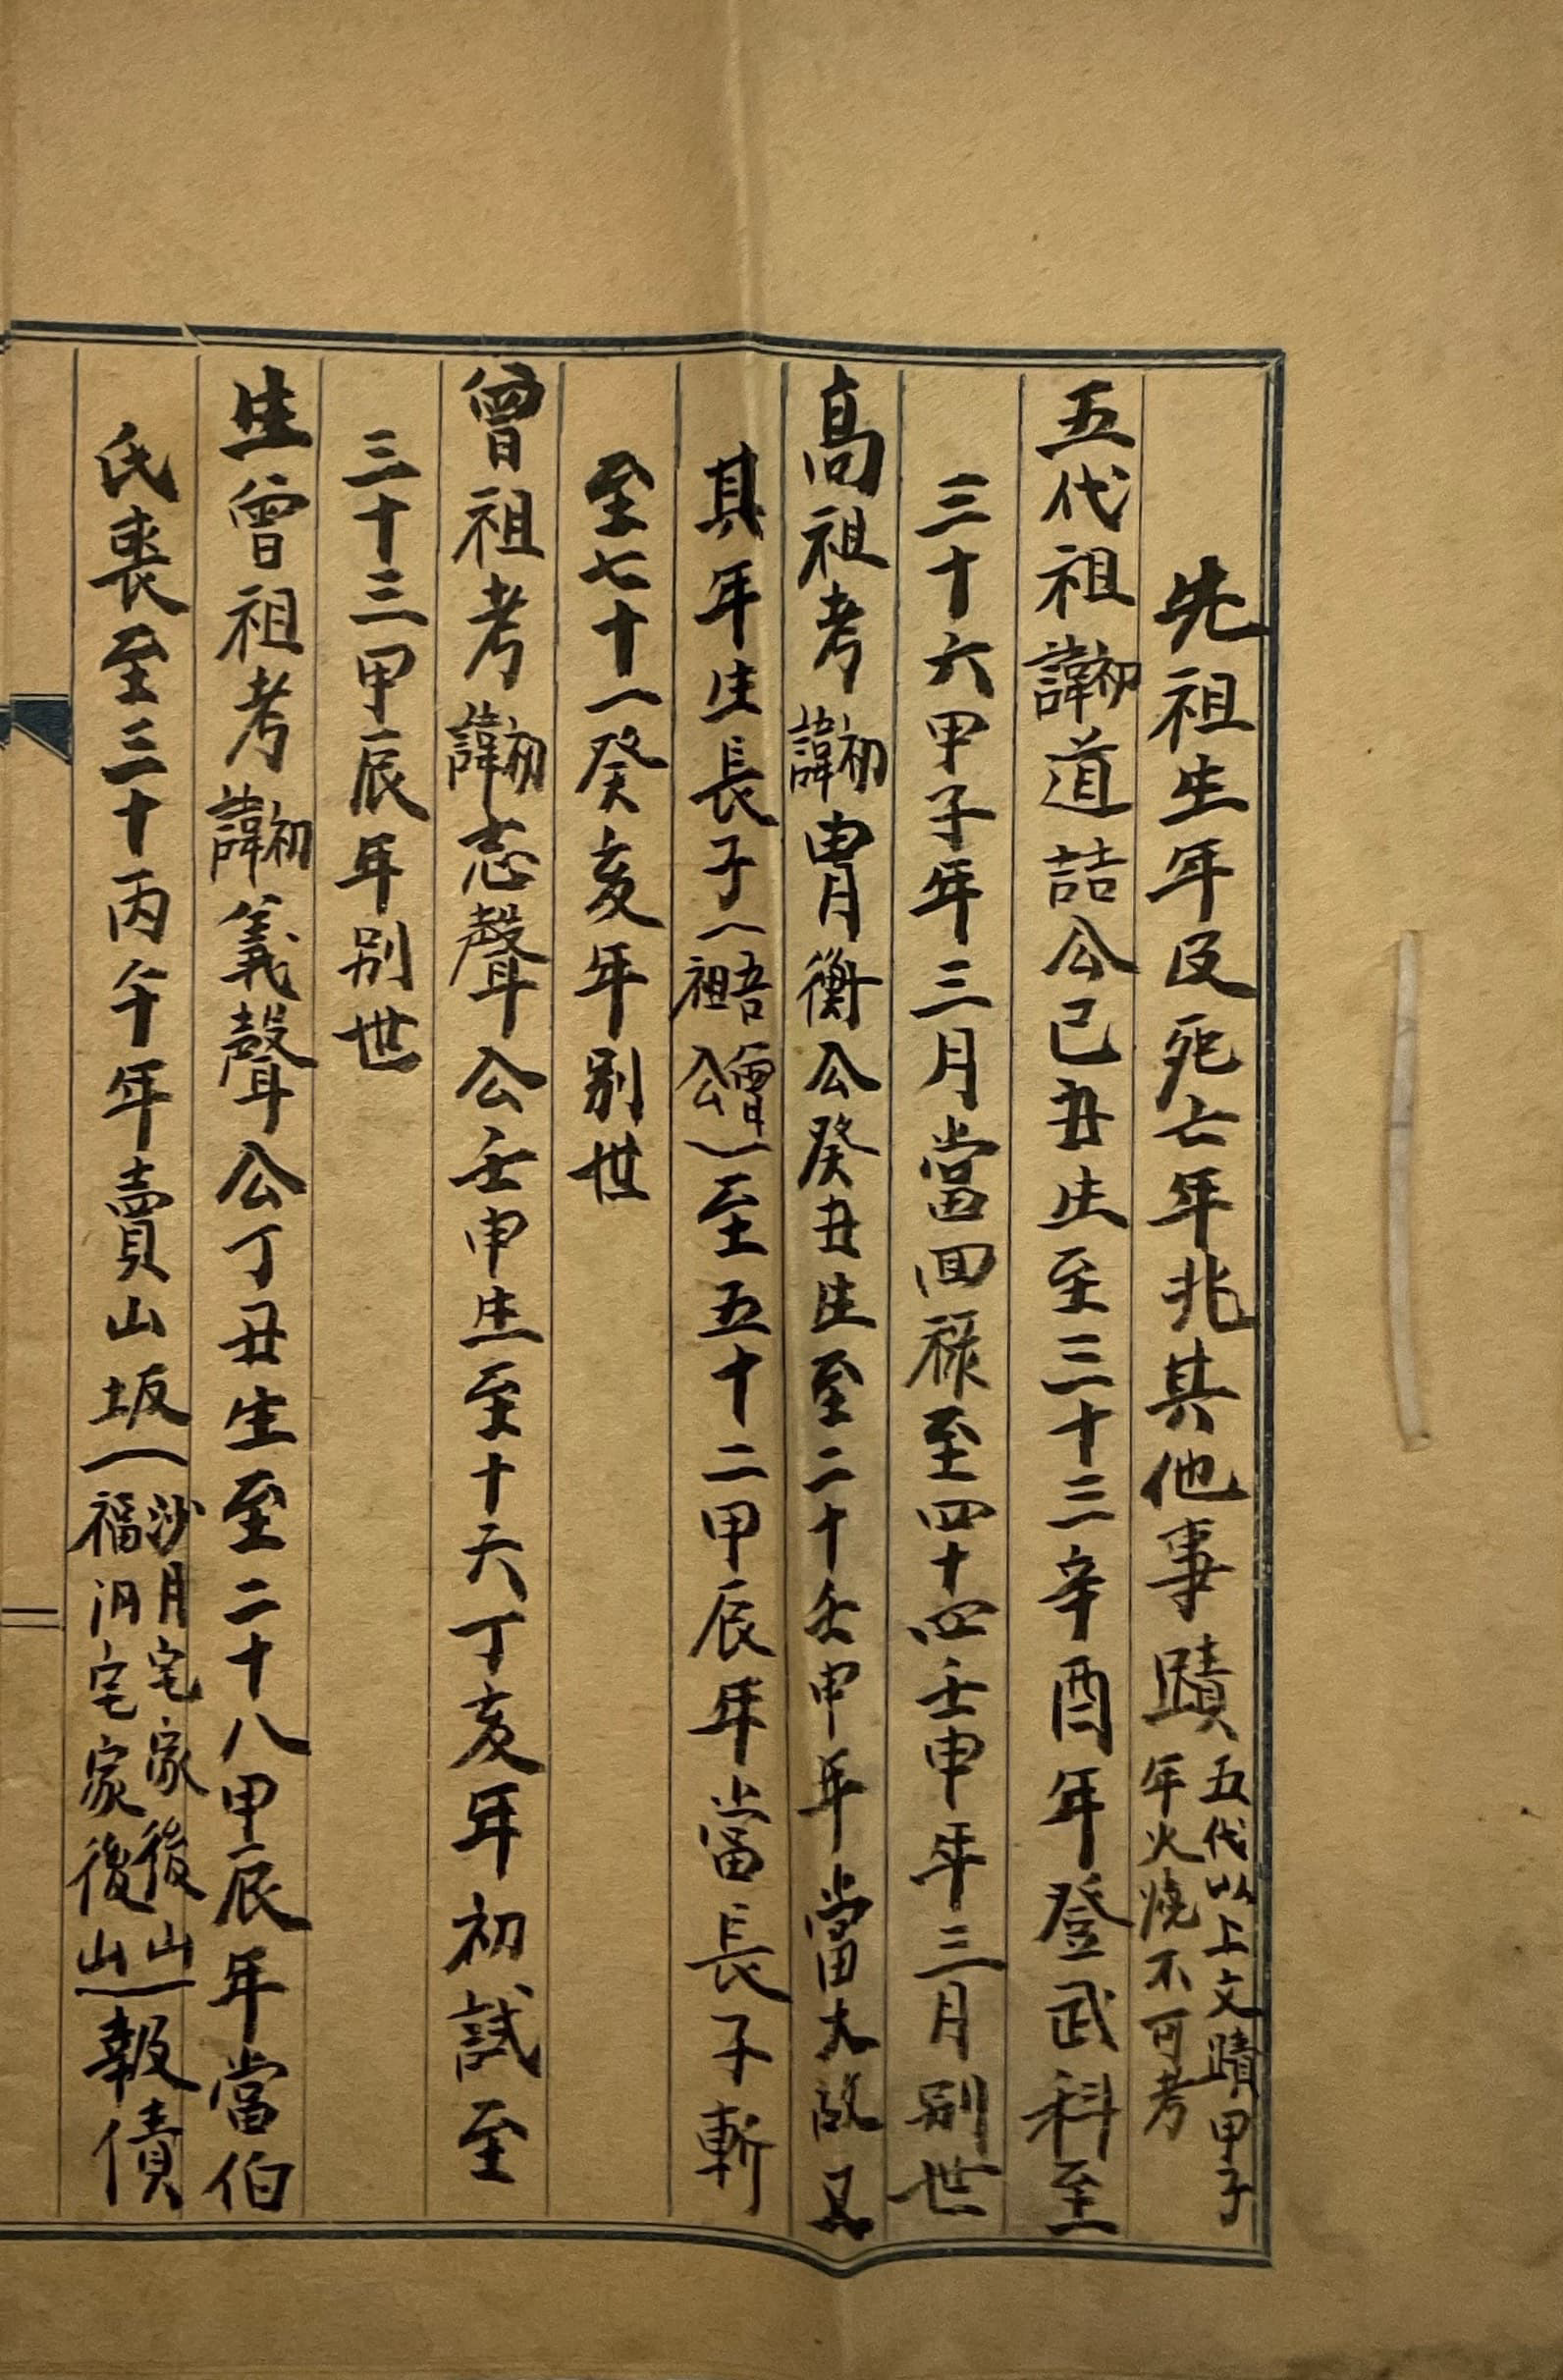 先祖生年及死亡年兆其他事蹟 五代以上文蹟甲子年火燒不可考
五代祖諱初道喆公己丑生至三十三辛酉年登武科至
三十六甲子年三月當回祿至四十四壬申年三月別世
高祖考諱初胄衡公癸丑生至二十壬申年當大故又
其年生長子(吾曾祖公)至五十二甲辰年當長子斬
至七十一癸亥年別世
曾祖考諱初志聲公壬申生至十六丁亥年初試至
三十三甲辰年別世
生曾祖考諱初義聲公丁丑生至二十八甲辰年當伯
氏喪至三十丙午年賣山坂(沙月宅家後山福汭宅家後山)報債